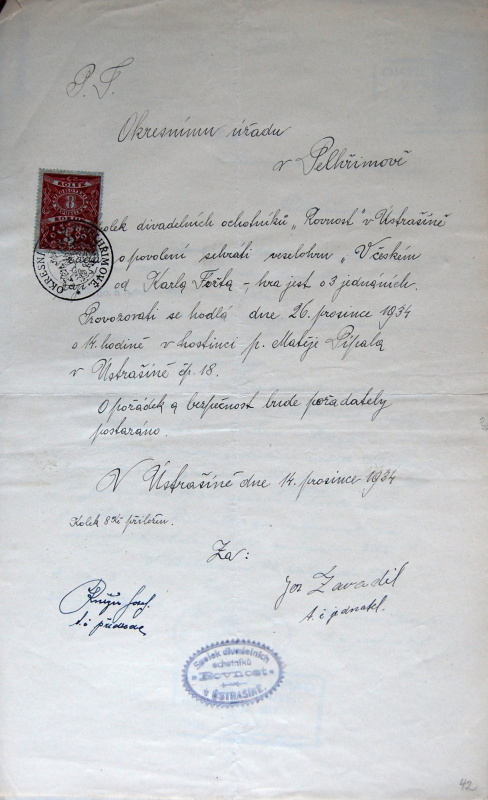 P. T.
Okresnímu úřadu
v Pelhřimově
KOLEK
8
OKRESNÍ PELHŘIMOVĚ
olek divadelních ochotníků „Rovnost" v Ústrašíně
o povolení sehráti veselohru „V českém
od Karla Fořta – hra jest o 3 jednáních.
Provozovati se hodlá dne 26. prosince 1934
o 14. hodině v hostinci p. Matěje Pípala
v Ústrašíně čp. 18.
O pořádek a bezpečnost bude pořadately
postaráno.
V Ústrašíně dne 14. prosince 1934
Kolek 8 Kč přiložen.
Za:
Jos Zavadil
t. č. jednatel.
t. č. předseda
Spolek divadelních
ochotníků
Rovnost
v ÚSTRAŠÍNĚ
42